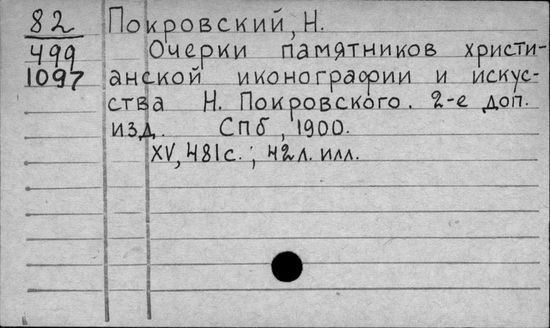 82 Покровский, Н.
499 Очерки памятников христи-
1097 анской иконографии и искус-
ства Н. Покровского. 2-е доп.
изд. Спб, 1900.
XV, 481 с.; 42 л. илл.